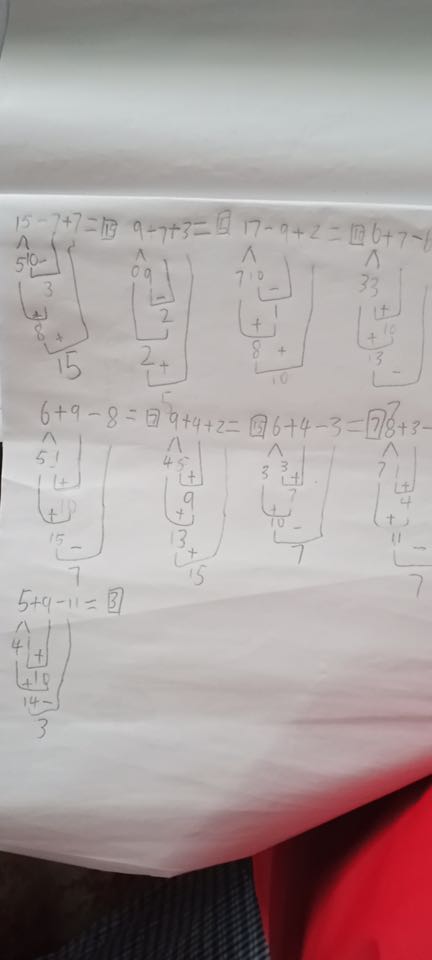 15-7+7=15 9-7+3=5 17-9+2=10 6+7-6
5 10 - 0 9 7 10 3 3
3 - - +
+ 2 1 10
8 + + +
15 2 + 8 + 13
5 10 -
6+9-8=7 9+4+2=15 6+4-3=7 8+3-
5 1 4 5 3 3 7 1
+ + + +
10 9 7 4
+ + + +
15 - 13 10 - 11
7 + 7 -
15 7
5+9-11=3
4 1
+
+ 10
14 -
3